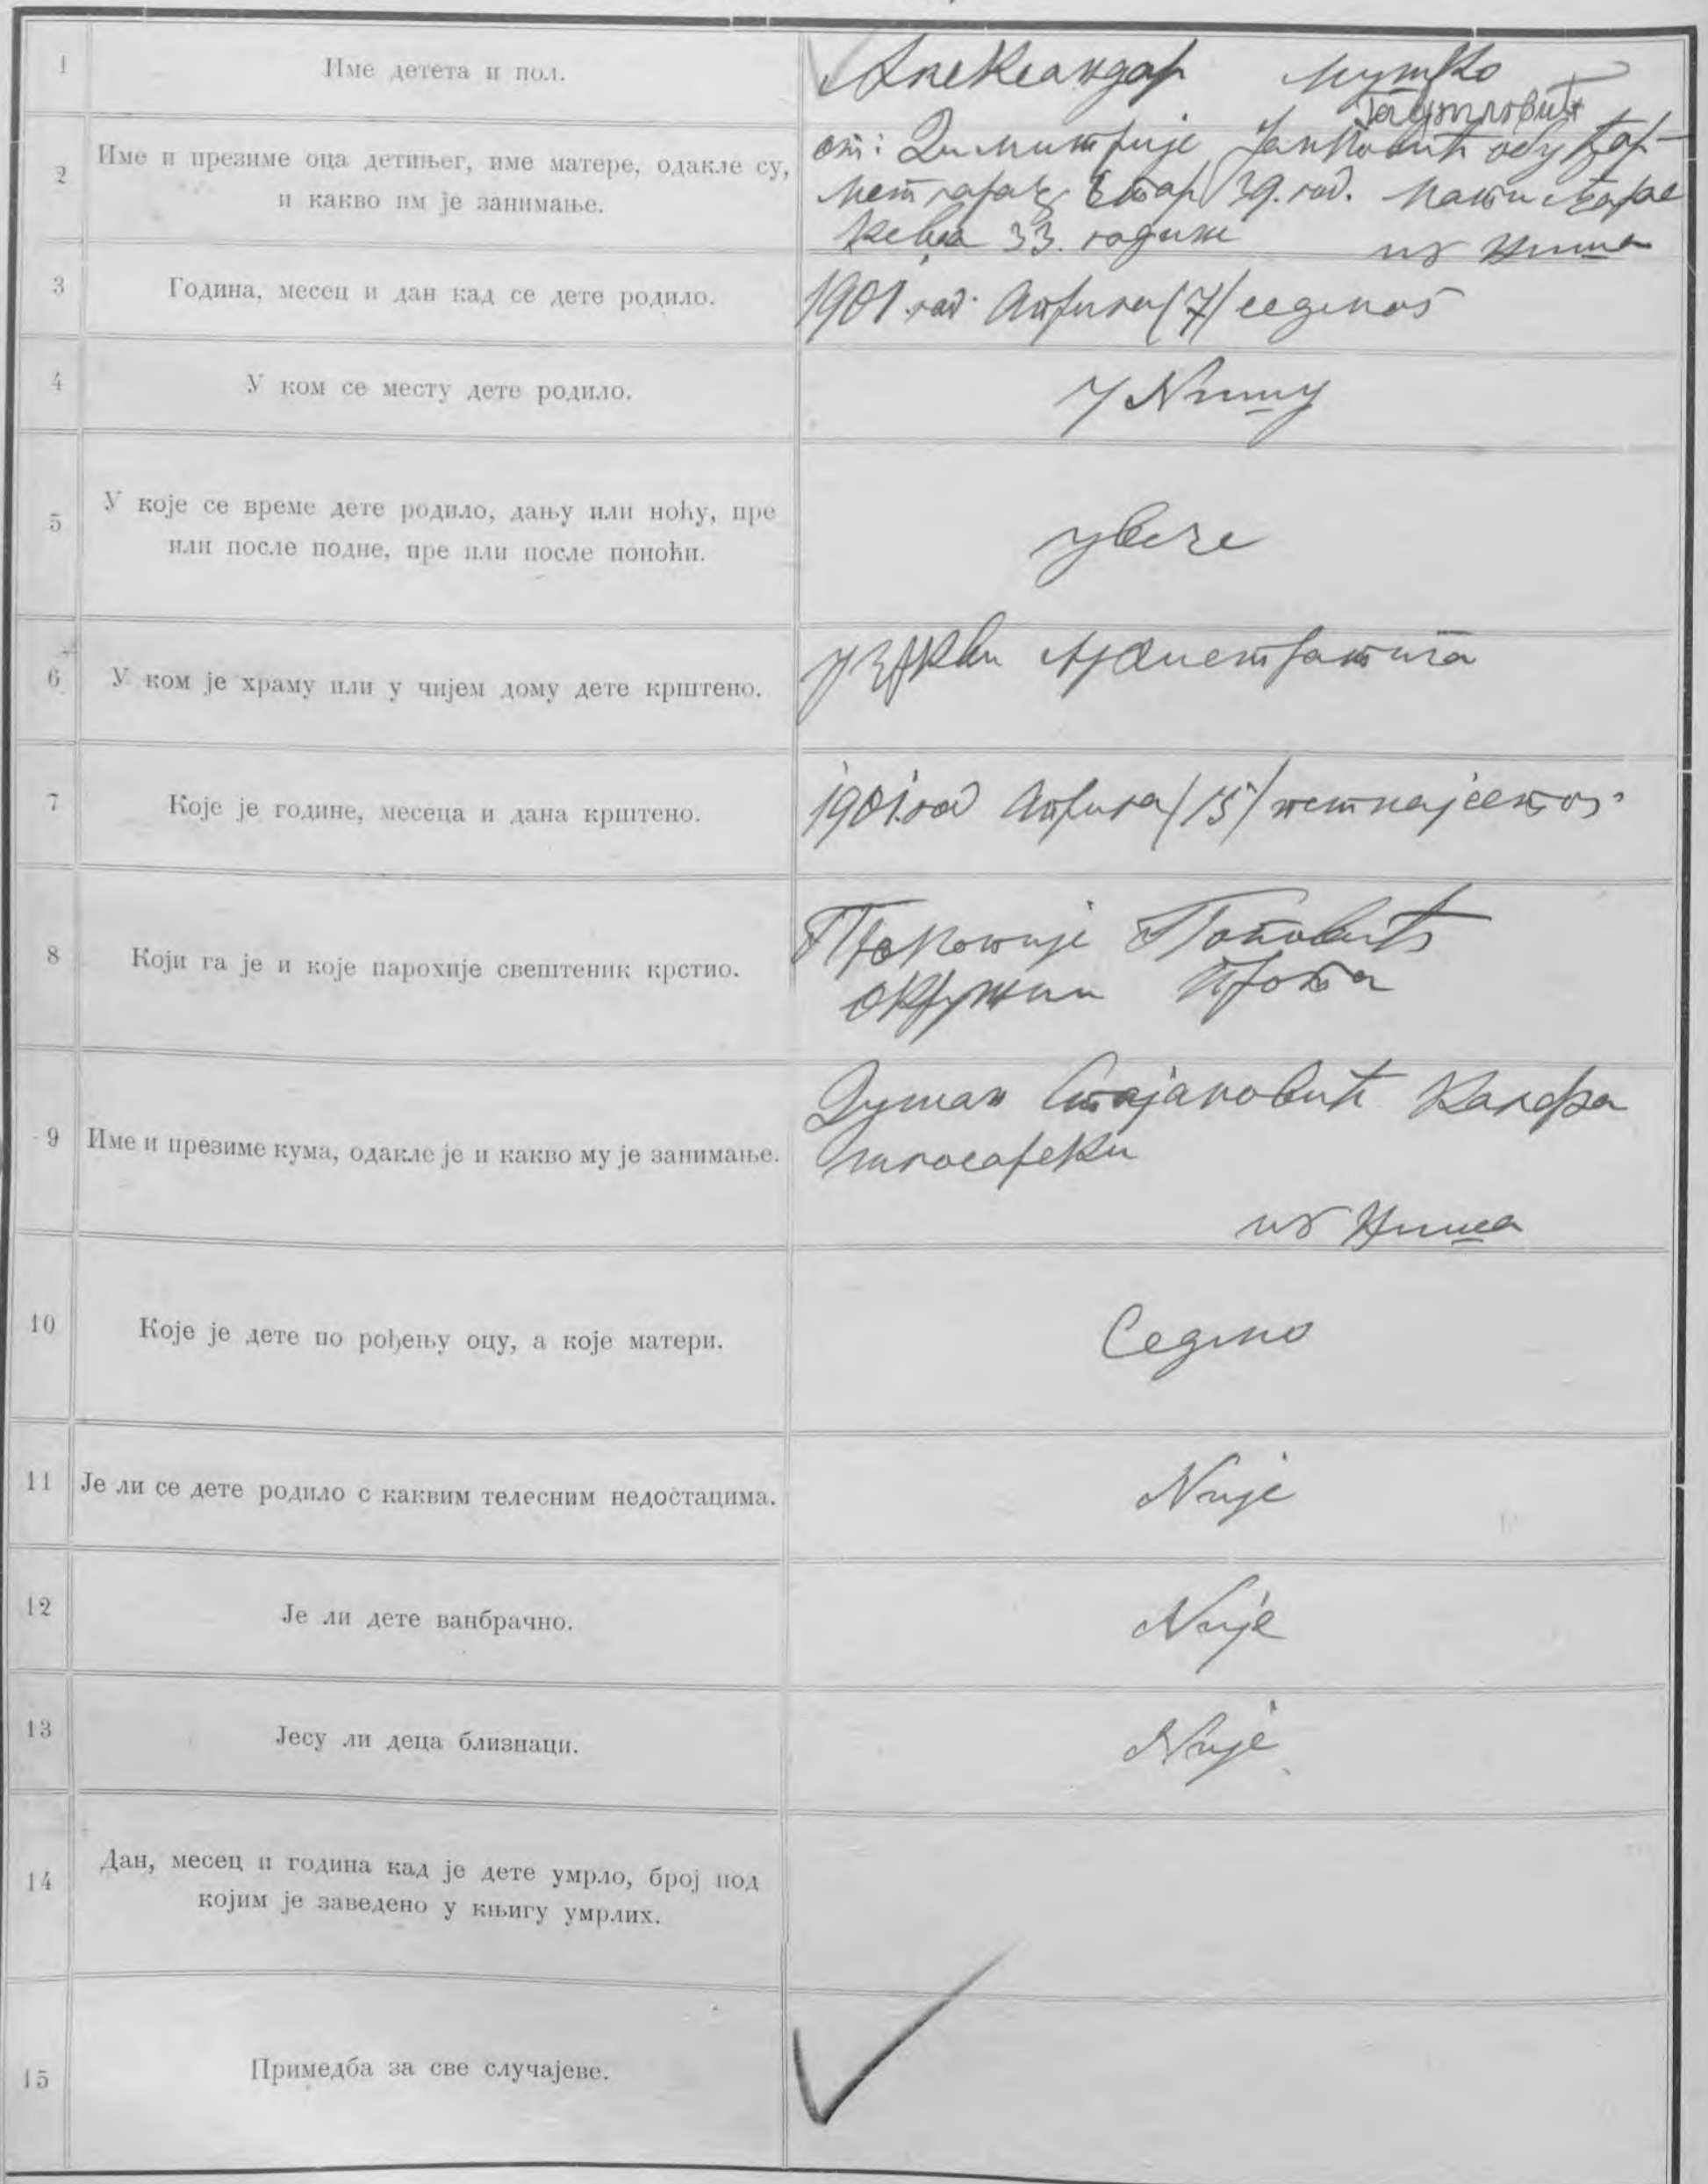 1
Име детета и пол.
Александар мушко
2
Име и презиме оца детињег, име матере, одакле су,
и какво им је занимање.
от: Димитрије Јанковић
стар 39. год. мати
33. године из Ниша
3
Година, месец и дан кад се дете родило.
1901. год. Априла /7/ седмог
4
У ком се месту дете родило.
у Нишу
5
У које се време дете родило, дању или ноћу, пре
или после подне, пре или после поноћи.
увече
6
У ком је храму или у чијем дому дете крштено.
у цркви
7
Које је године, месеца и дана крштено.
1901. год Априла /15/ петнајестог
8
Који га је и које парохије свештеник крстио.
Прокопије Поповић
окружни прота
9
Име и презиме кума, одакле је и какво му је занимање.
Душан Стајановић калфа
из Ниша
10
Које је дете по рођењу оцу, а које матери.
Седмо
11
Је ли се дете родило с каквим телесним недостацима.
Није
12
Је ли дете ванбрачно.
Није
13
Јесу ли деца близнаци.
Није
14
Дан, месец и година кад је дете умрло, број под
којим је заведено у књигу умрлих.
15
Примедба за све случајеве.